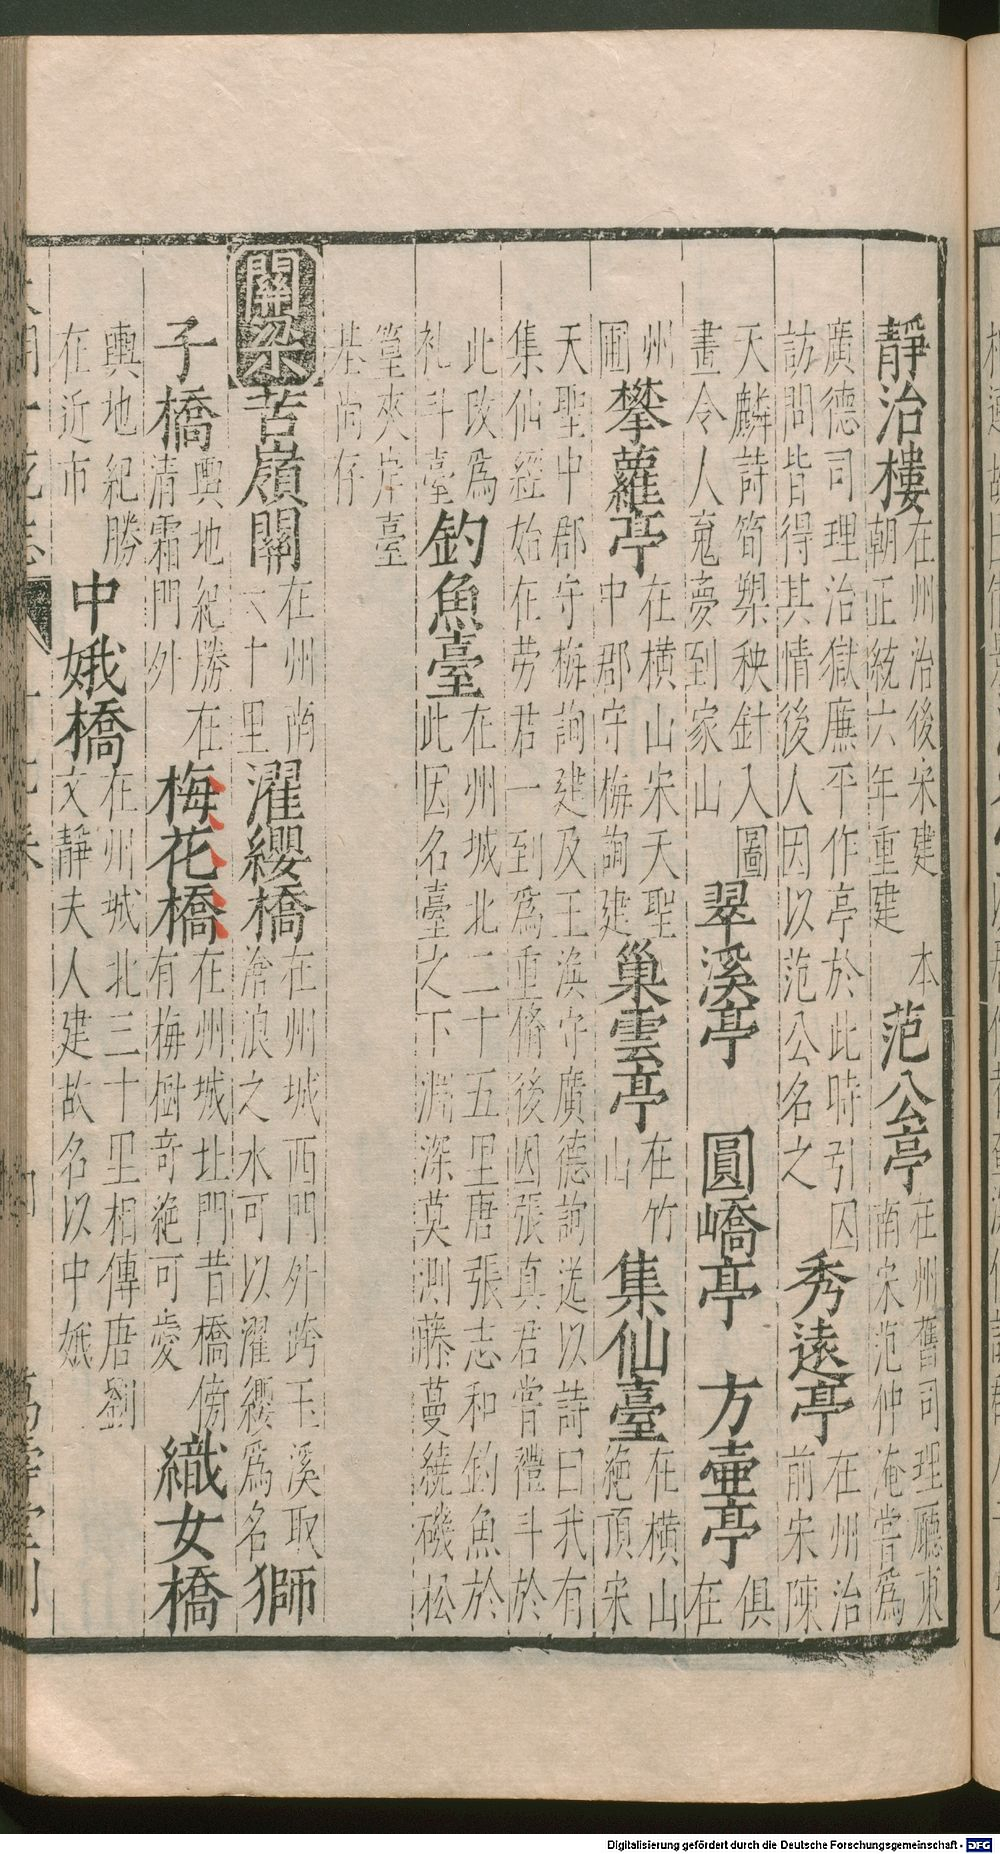 靜治樓在州治後宋建本朝正統六年重建范公亭在州舊司理廳東南宋范仲淹嘗爲
廣德司理治獄廉平作亭於此時引囚訪問皆得其情後人因以范公名之秀遠亭在州治前宋陳
天麟詩筍槊秧針入圖畫令人䰟夢到家山翠溪亭圓嶠亭方壺亭俱在
州圃攀蘿亭在橫山宋天聖中郡守梅詢建巢雲亭在竹山集仙臺在橫山絶頂宋
天聖中郡守梅詢建及王渙守廣德詢送以詩曰我有集仙經始在勞君一到爲重脩後因張真君嘗禮斗於
此改爲礼斗臺釣魚臺在州城北二十五里唐張志和釣魚於此因名臺之下淵深莫測藤蔓繞磯松
篁夾岸臺基尚存
關梁苦嶺關在州南六十里濯纓橋在州城西門外跨玉溪取滄浪之水可以濯纓爲名獅
子橋輿地紀勝在清霜門外梅花橋在州城北門昔橋傍有梅樹奇絶可愛織女橋
輿地紀勝在近市中娥橋在州城北三十里相傳唐劉文靜夫人建故名以中娥
萬壽堂刊
Digitalisierung gefördert durch die Deutsche Forschungsgemeinschaft - DFG